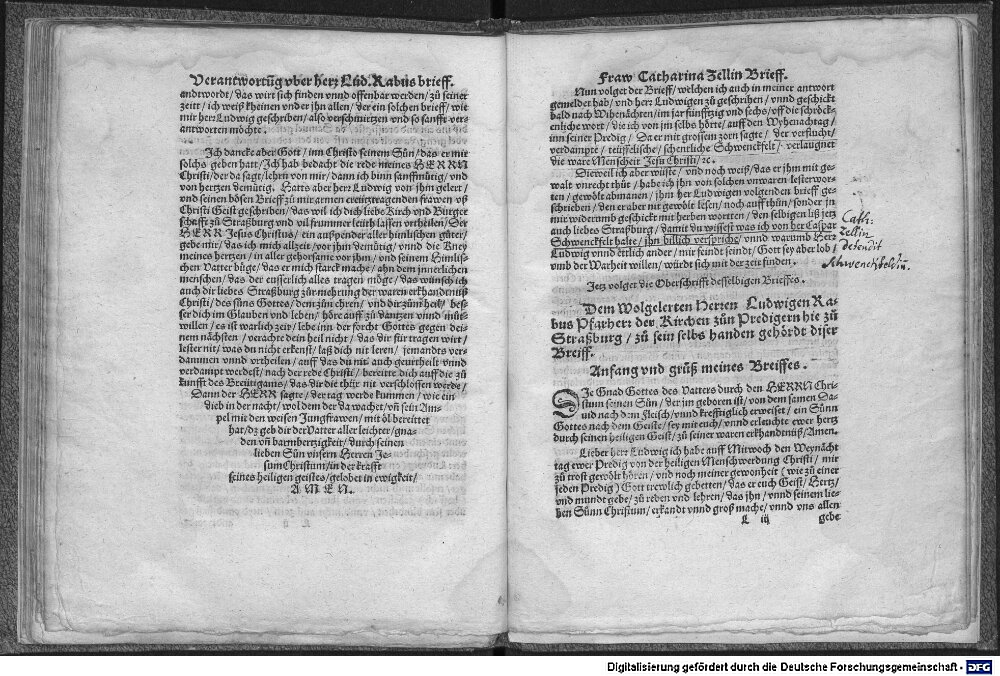 Verantwortũg vber herꝛ Lůd. Rabus brieff.
andtwordt/ das wirt sich finden vnnd offenbar werden/ zů seiner
zeitt/ ich weiß kheinen vnder jhn allen/ der ein solchen brieff/ wie
mir herꝛ Ludwig geschriben/ also verschmirtzen vnd so sanfft ver-
antworten möcht.
Ich dancke aber Gott/ inn Christo seinem Sůn/ das er mir
solchs geben hatt/ Ich hab bedacht die rede meines HERRN
Christi/ der da sagt/ lehrn von mir/ dann ich binn sanfftmütig/ vnd
von hertzen demütig. Hatts aber herꝛ Ludwig von jhm gelert/
und seinen bösen Brieff zů mir armen creütztragenden frawen vß
Christi Geist geschriben/ das wil ich dich liebe Kirch vnd Burger
schafft zů Straßburg vnd vil frummer leüth lassen vrtheilen/ Der
HERR Jesus Christus/ ein außpender aller himlischen gůter/
gebe mir/ das ich mich allzeit/ vor jhm demütig/ vnnd die Kney
meines hertzen/ in aller gehorsame vor jhm/ vnd seinem Himlis-
chen Vatter büge/ das er mich starck mache/ ahn dem innerlichen
menschen/ das der eusserlich alles tragen möge/ das wünsch ich
auch dir liebes Straßburg zůr mehrung der waren erkhandtnüß
Christi/ des süns Gottes/ dem zůn ehren/ vnd dir zům heil/ bes-
ser dich im Glauben vnd leben/ höre auff zů dantzen vnnd můt-
willen/ es ist warlich zeit/ lebe inn der forcht Gottes gegen dei-
nem nächsten/ verachte dein heil nicht/ das dir für tragen wirt/
lester nit/ was du nicht erkenst/ laß dich nit leren/ jemandts ver-
dammen vnnd vrtheilen/ auff das du nit auch geurtheilt vnnd
verdampt werdest/ nach der rede Christi/ bereitte dich auff die zů
kunfft des Breütigams/ das dir die thür nit verschlossen werde/
Dann der HERR sagte/ der tag werde kummen/ wie ein
dieb in der nacht/ wol dem der da wachet/ vñ sein Am-
pel mit den weisen Jungfrawen/ mit öl bereittet
hat/ dz geb dir der Vatter aller leichter/ gna-
den vñ barmhertzigkeit/ durch seinen
lieben Sůn vnsern Herren Je-
sum Christum/ in der krafft
seines heiligen geistes/ gelobet in ewigkeit/
A M E N.
Fraw Catharina Zellin Brieff.
Nun volget der Brieff/ welchen ich auch in meiner antwort
gemelder hab/ vnd herꝛ Ludwigen zů geschriben/ vnnd geschickt
bald nach Wihenächten/ im jar funfftzig vnd sechs/ vff die schröck-
enliche wort/ die ich von jm selbs hörte/ auff den Wyhenachtag/
inn seiner Predig/ Da er mit grossem zorn sagte/ der verflucht/
verdampte/ teüffelische/ schentliche Schwenckfelt/ verlaugnet
die ware Menscheit Jesu Christi/ ꝛc.
Dieweil ich aber wüste/ vnd noch weiß/ das er jhm mit ge-
walt vnrecht thüt/ habe ich jhn von solchen vnwaren lesterwor-
ten/ gewölt abmanen/ jhm her Ludwigen volgenden brieff ge-
schriben/ den er aber nit gewölt lesen/ noch auff thün/ sonder jn
mir widerumb geschickt mit herben wortten/ den selbigen liß jetz
auch liebes Straßburg/ damit du wissest was ich von her Caspar
Schwenckfelt halte/ jhn billich verspriche/ vnnd warumb Herꝛ
Ludwig vnnd ettlich ander/ mir feindt seindt/ Gott sey aber lob/
vmb der Warheit willen/ würdt sich mit der zeit finden.
Cath:
Zellin
defendit
Schwenckfeldin.
Jetz volget die Oberschrifft desselbigen Brieffes.
Dem Wolgelerten Herren Ludwigen Ra-
bus Pfarherꝛ der Kirchen zůn Predigern hie zů
Straßburg/ zů sein selbs handen gehördt diser
Breiff.
Anfang vnd grůß meines Breiffes.
DJe Gnad Gottes des Vatters durch den HERRN Chri-
stum seinen Sůn/ der jm geboren ist/ von dem samen Da-
uid nach dem fleisch/ vnnd krefftiglich erweiset/ ein Sůnn
Gottes nach dem Geiste/ sey mit euch/ vnnd erleuchte ewer hertz
durch seinen heiligen Geist/ zů seiner waren erkhandtnüß/ Amen.
Lieber herꝛ Ludwig ich habe auff Mitwoch den Weynächt
tag ewer Predig von der heiligen Menschwerdung Christi/ mir
zů trost gewölt hören/ vnd noch meiner gewonheit (wie zů einer
jeden Predig) Gott trewlich gebetten/ das er euch Geist/ Hertz/
vnd mundt gebe/ zů reden vnd lehren/ das jhn/ vnnd seinem lie-
ben Sůnn Christum/ erkandt vnnd groß mache/ vnnd vns allen
L iij gebe
Digitalisierung gefördert durch die Deutsche Forschungsgemeinschaft - DFG